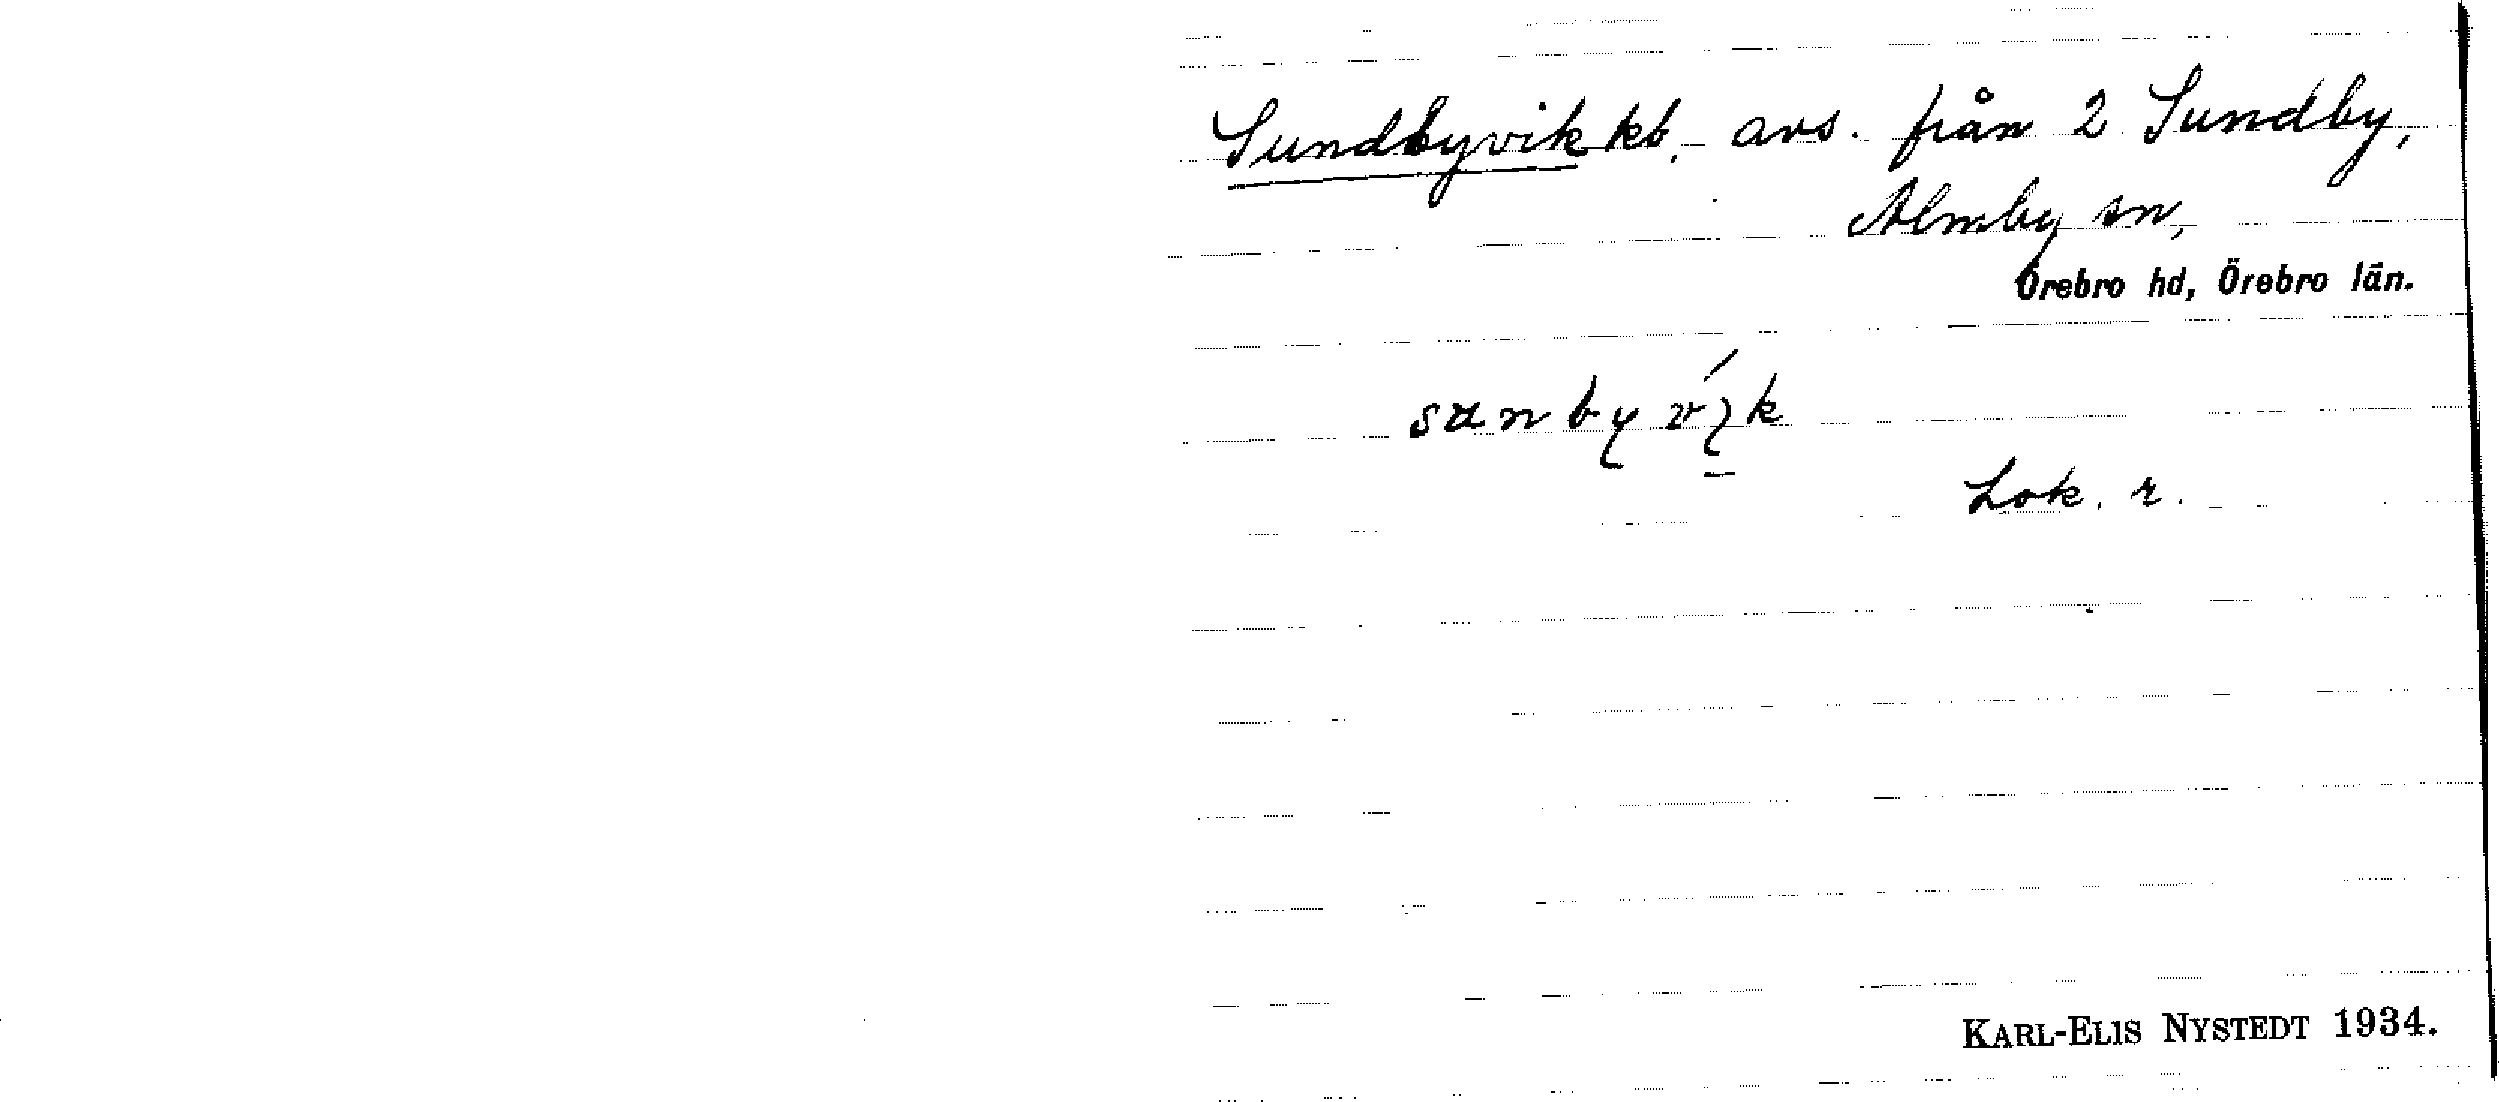 Sundbyvik kb. avs. från 2 Sundby,
Almby sn,
Örebro hd, Örebro län.
Lok. r.
KARL-ELIS NYSTEDT 1934.